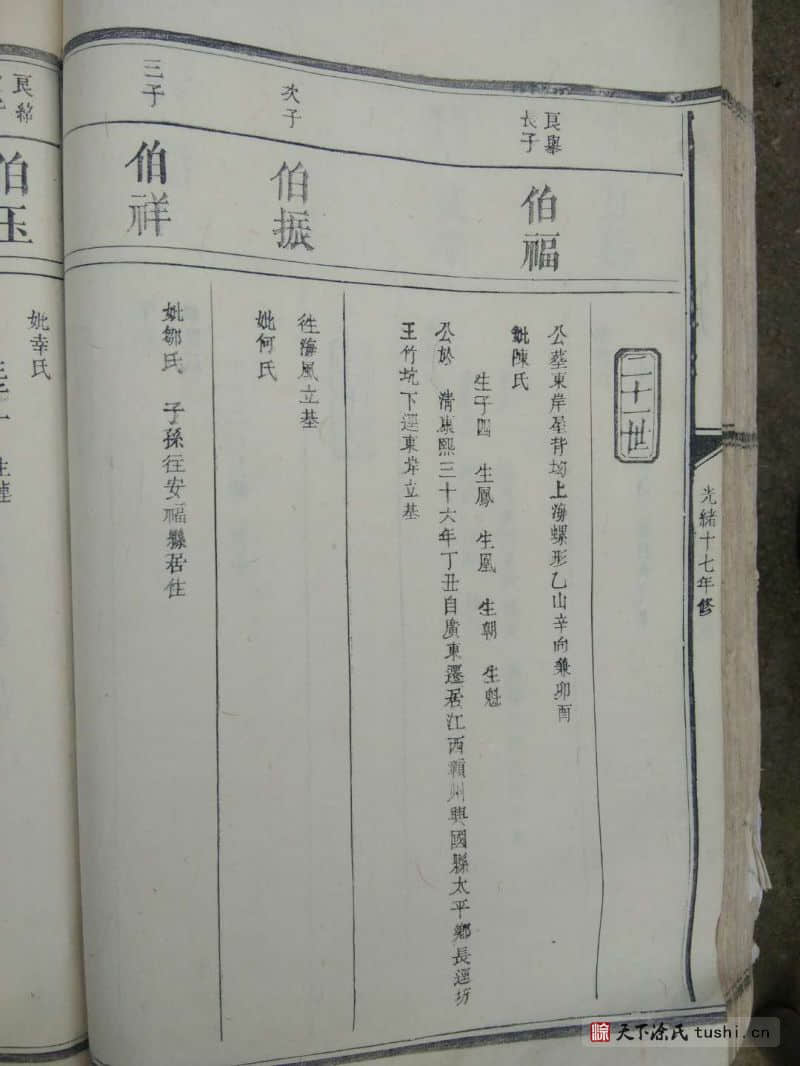 光緒十七年修
二十一世
良舉
長子
伯福
公塟東岸屋背坳上海螺形乙山辛向兼卯酉
妣陳氏
生子四 生鳳 生凰 生朝 生魁
公於 清康熙三十六年丁丑自廣東遷居江西贛州興國縣太平鄉長逕坊
王竹坑下逕東岸立基
次子
伯振
徃海風立基
妣何氏
三子
伯祥
妣鄒氏 子孫往安福縣居住
良綿
伯玉
妣幸氏
天下涂氏 tushi.cn